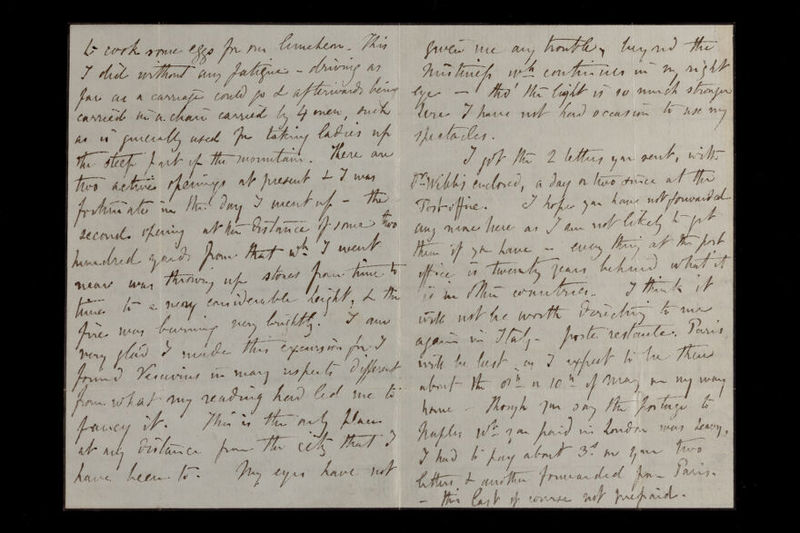 to cook some eggs for our luncheon. This
I did without any fatigue - driving as
far as a carriage could go & afterwards being
carried in a chair carried by 4 men, such
as is generally used for taking ladies up
the steep part of the mountain. There are
two active openings at present & I was
fortunate in the day I went up - the
second opening at the distance of some two
hundred yards from that wh I went
near was throwing up stones from time to
time to a very considerable height, & the
fire was burning very brightly. I am
very glad I made this excursion for I
found Vesuvius in many respects different
from what my reading had led me to
fancy it. This is the only place
at any distance from the city that I
have been to. My eyes have not
given me any trouble, beyond the
mistiness wh continues in my right
eye - tho' the light is so much stronger
here I have not had occasion to use my
spectacles.
I got the 2 letters you sent, with
enclosed, a day or two since at the
Post-office. I hope you have not forwarded
any more here as I am not likely to get
them if you have - every thing at the post
office is twenty years behind what it
is in other countries. I think it
will not be worth directing to me
again in Italy - poste restante. Paris
will be best as I expect to be there
about the 8th or 10th of May on my way
home - Though you say the postage to
Naples wh you paid in London was heavy,
I had to pay about 3s on your two
letters & another forwarded from Paris
- this last of course not prepaid.